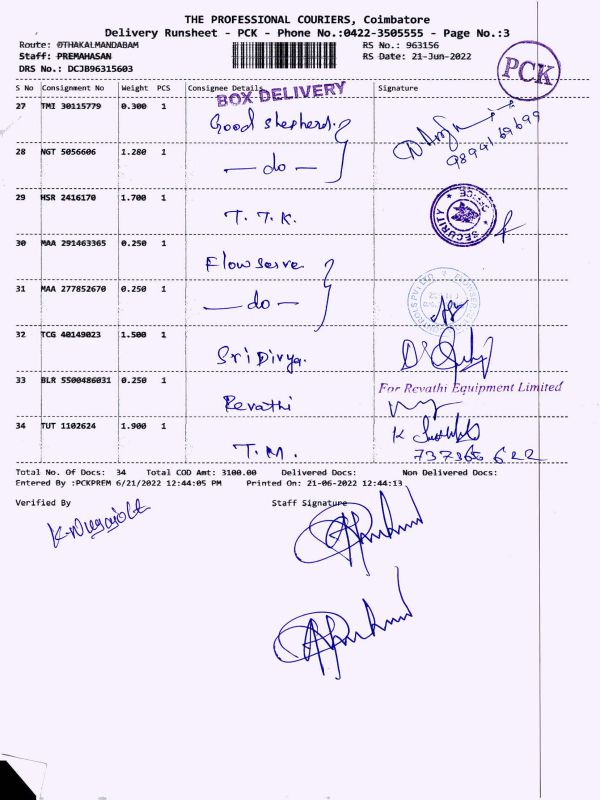 THE PROFESSIONAL COURIERS, Coimbatore
Delivery Runsheet - PCK - Phone No.:0422-3505555 - Page No.:3
Route: OTHAKALMANDABAM RS No.: 963156
Staff: PREMAHASAN RS Date: 21-Jun-2022
DRS No.: DCJB96315603
PCK
S No Consignment No Weight PCS Consignee Details Signature
BOX DELIVERY
27 TMI 30115779 0.300 1 Good shepherd.
28 NGT 5056606 1.280 1 — do —
9894169699
29 HSR 2416170 1.700 1 T. T. K.
SECURITY OFFICE
30 MAA 291463365 0.250 1 Flowserve
31 MAA 277852670 0.250 1 — do —
32 TCG 40149023 1.500 1 Sri Divya.
33 BLR 5500486031 0.250 1 Revathi
For Revathi Equipment Limited
34 TUT 1102624 1.900 1 T.M.
K
Total No. Of Docs: 34 Total COD Amt: 3100.00 Delivered Docs: Non Delivered Docs:
Entered By :PCKPREM 6/21/2022 12:44:05 PM Printed On: 21-06-2022 12:44:13
Verified By Staff Signature